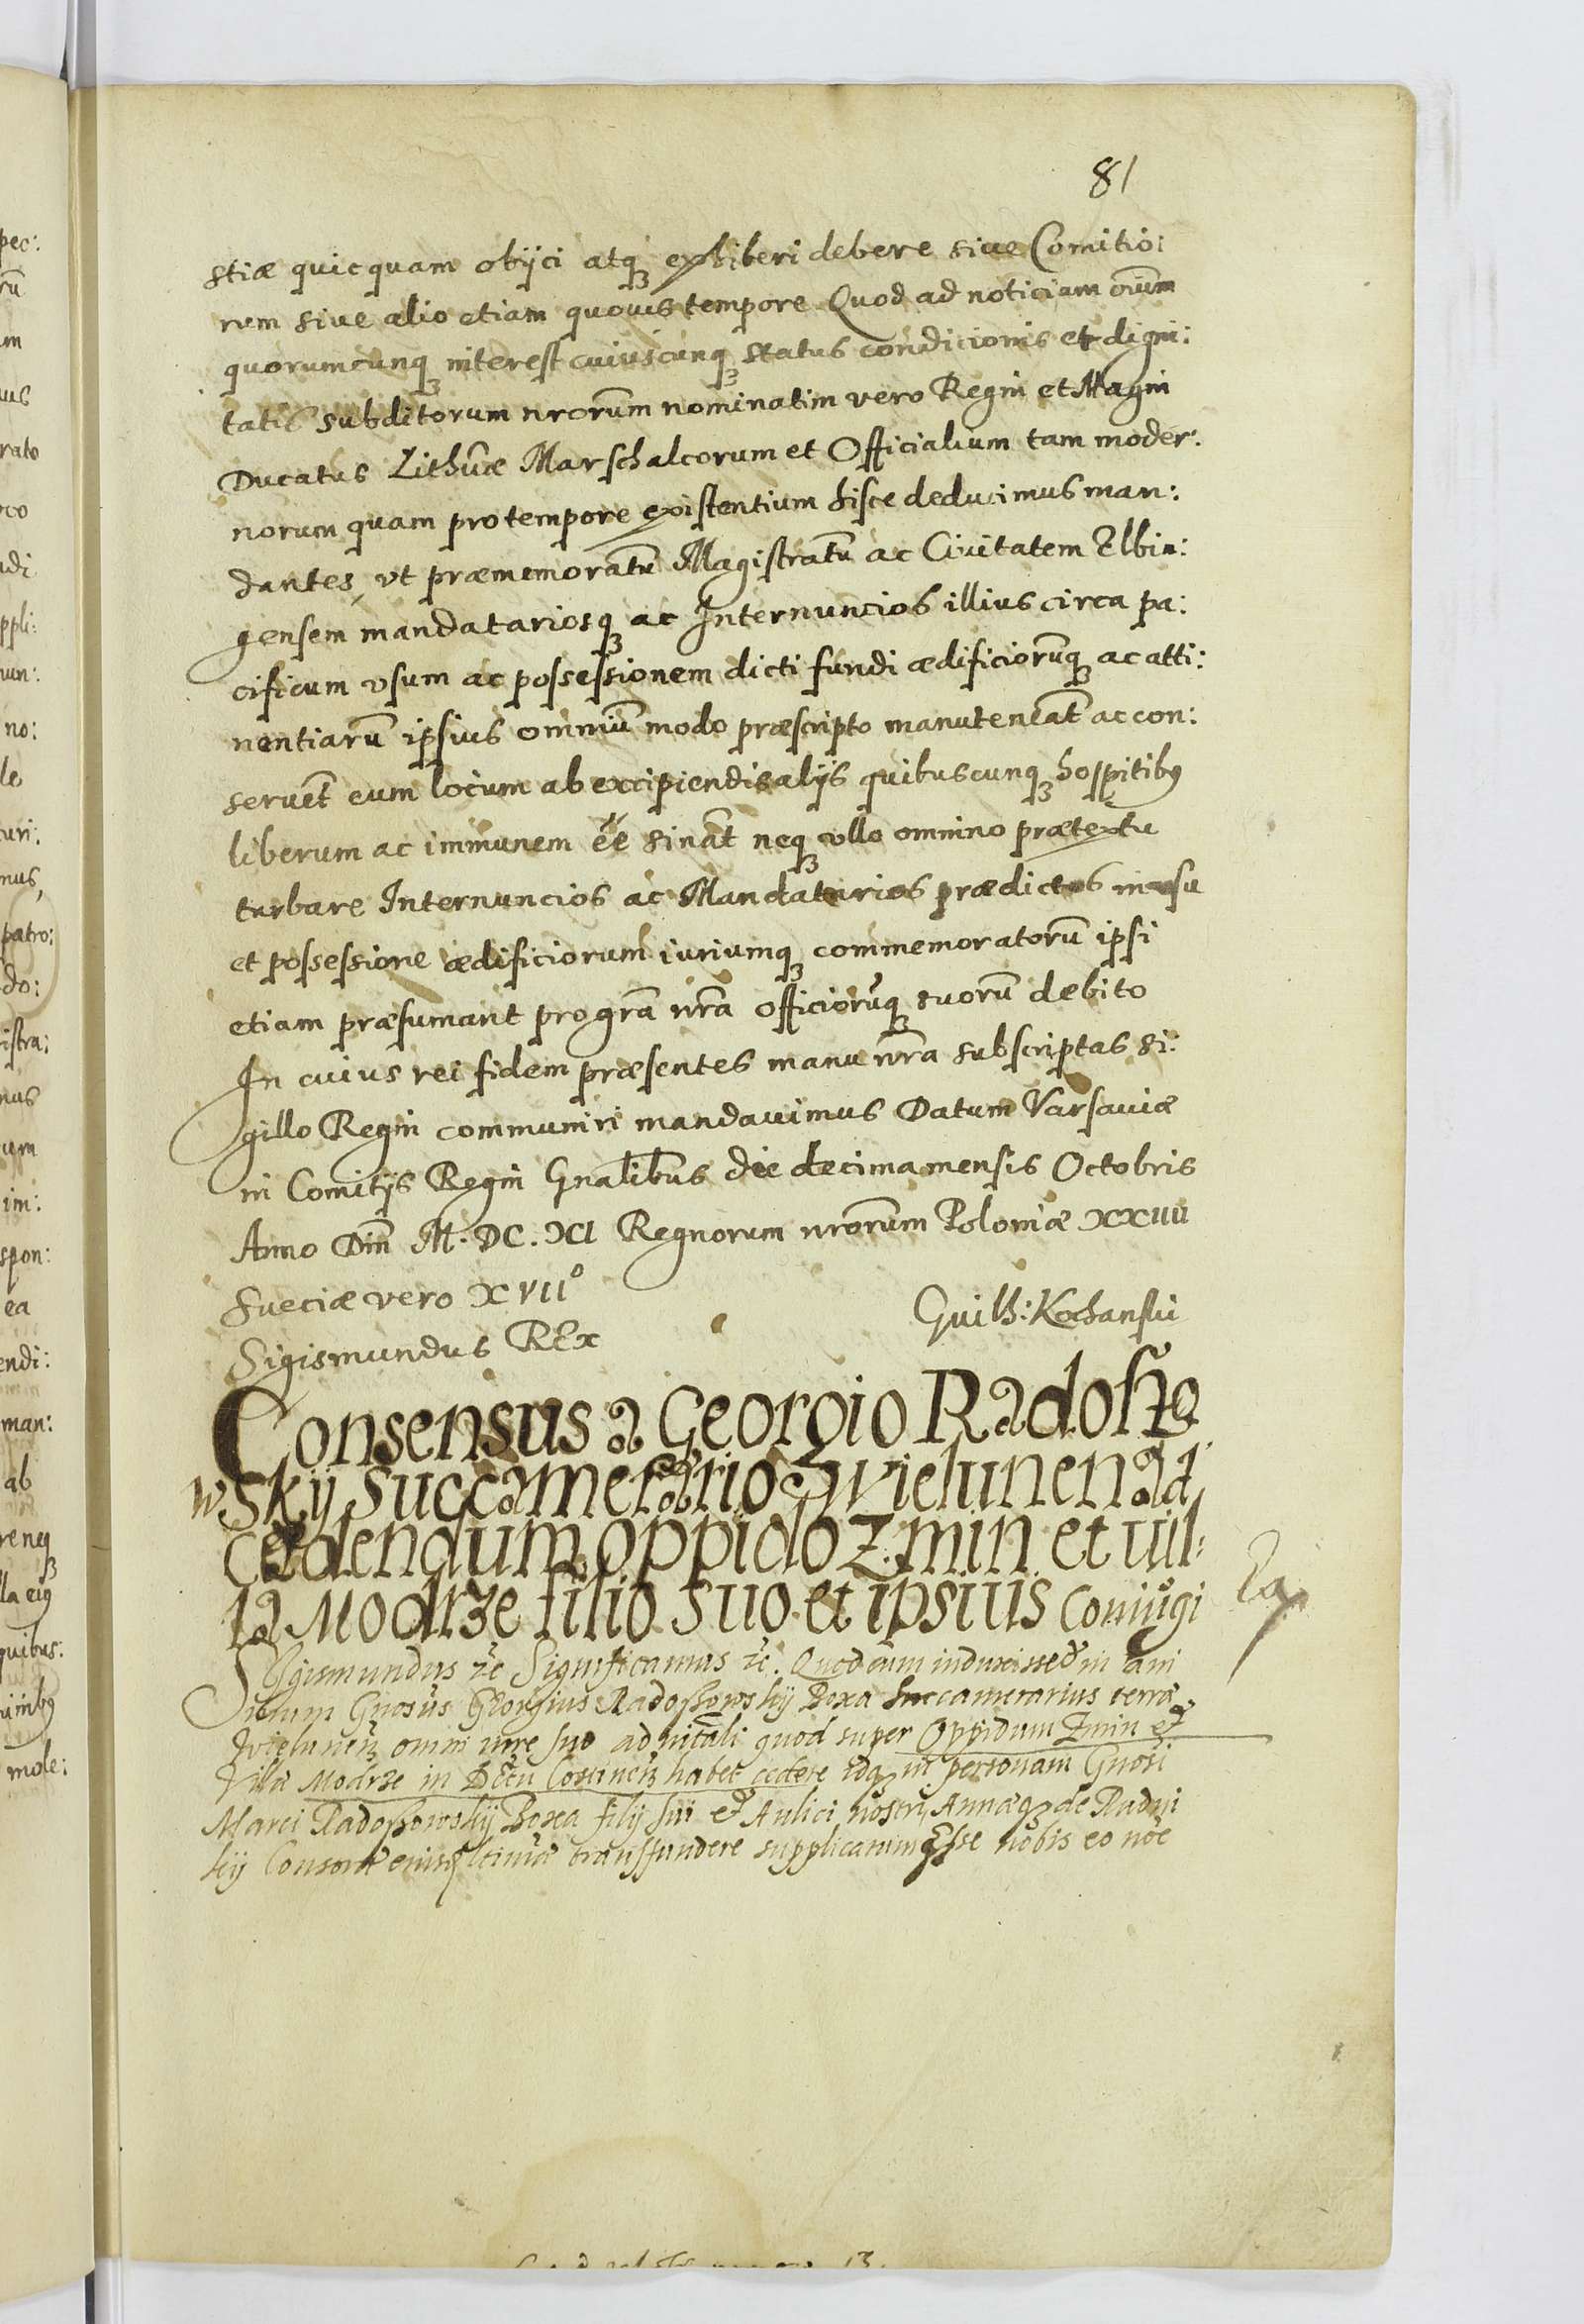 81
stiæ quicquam obijci atq₃ exhiberi debere siue Comitio:
rum siue alio etiam quouis tempore Quod ad noticiam oium̄
quorumcunq₃ interest cuiuscunq₃ status condicionis et digni:
tatis subditorum nrorum̄ nominatim vero Regni et Magni
Ducatus Lithuæ Marschalcorum et Officialium tam moder:
norum quam pro tempore existentium hisce deducimus man:
dantes, vt præmemoratū Magistratū ac Ciuitatem Elbin:
gensem mandatariosq₃ ac Internuncios illius circa pa:
cificum vsum ac possessionem dicti fundi ædificiorūq₃ ac atti:
nentiarū ipsius omniū modo præscripto manuteneāt ac con:
seruēt eum locum ab excipiendis alijs quibuscunq₃ hospitibꝰ
liberum ac immunem ēē sināt neq₃ vllo omnino prætextu
turbare Internuncios ac Mandatarios prædictos in vsu
et possessione ædificiorum iuriumq₃ commemoratorū ipsi
etiam præsumant pro grā nrā officiorūq₃ suorū debito
In cuius rei fidem præsentes manu nrā subscriptas si:
gillo Regni communiri mandauimus Datum Varsauiæ
in Comitijs Regni Gnalibus die decima mensis Octobris
Anno Dni M. DC. XI Regnorum nrorum Poloniæ XXIIII
Sueciæ vero XVIIº
Guilh: Kochanski
Sigismundus REx
Consensus a Georgio Radoszo
wskij Succamerario Wielunen ad
cedendum oppido Zmin et uil:
la Modrze filio suo et ipsius Coniugi
Sigismundus &c Significamus &c. Quod cum induxisset in ani
mum Gnosus Georgius Radoszowskij Boxa Succamerarius terræ
Wielunen omni iure suo aduitali quod super Oppidum Zmin et
Villā Modrze in Dctu Costinen habet cedere idq₃ in personam Gnosi
Marci Radoszowskij Boxa filij sui et Aulici nostri, Annæq₃ de Rudni
kij Consortē eius ltimæ transfundere supplicatum Esse nobis eo noē